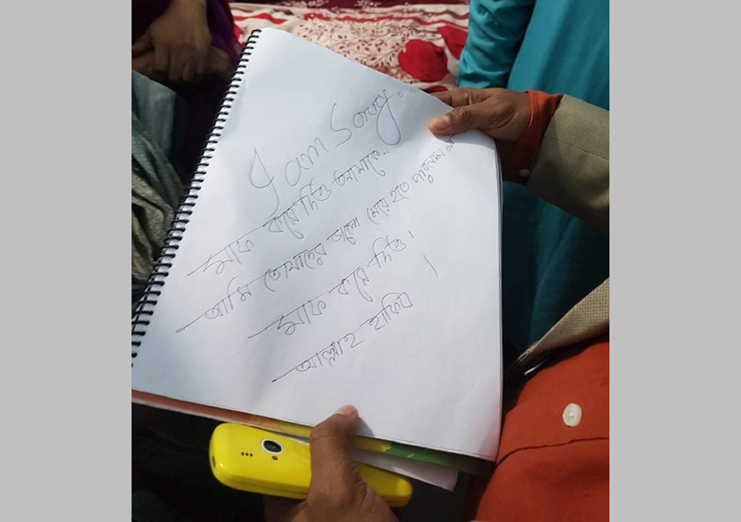 I am Sorry.
মাফ করে দিও আমাকে..
আমি তোমাদের ভালো মেয়ে হতে পারলাম না
মাফ করে দিও।
আল্লাহ হাফিজ।